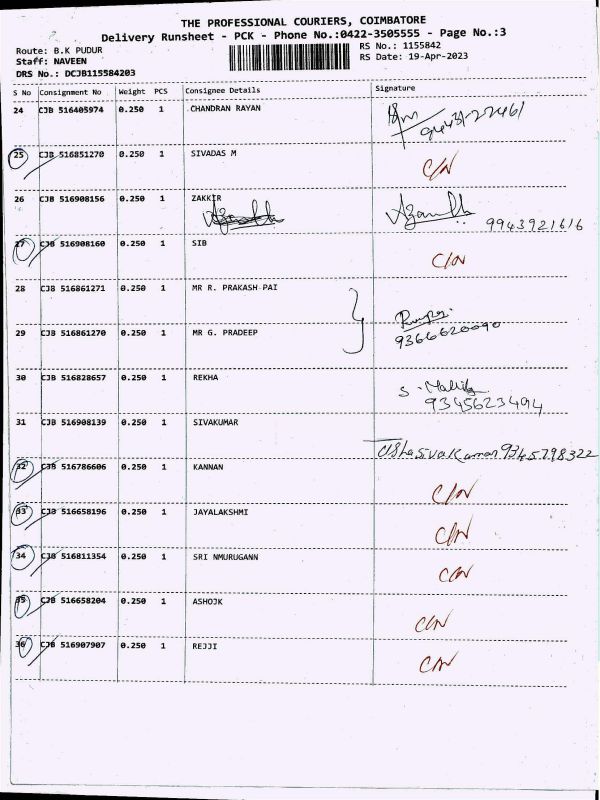 THE PROFESSIONAL COURIERS, COIMBATORE
Delivery Runsheet - PCK - Phone No.:0422-3505555 - Page No.:3
Route: B.K PUDUR
RS No.: 1155842
Staff: NAVEEN
RS Date: 19-Apr-2023
DRS No.: DCJB115584203
S No Consignment No Weight PCS Consignee Details Signature
24 CJB 516405974 0.250 1 CHANDRAN RAYAN
25 CJB 516851270 0.250 1 SIVADAS M C/N
26 CJB 516908156 0.250 1 ZAKKIR 9943921616
27 CJB 516908160 0.250 1 SIB C/N
28 CJB 516861271 0.250 1 MR R. PRAKASH PAI
29 CJB 516861270 0.250 1 MR G. PRADEEP
9366620090
30 CJB 516828657 0.250 1 REKHA
9345623494
31 CJB 516908139 0.250 1 SIVAKUMAR
9345798322
32 CJB 516786606 0.250 1 KANNAN C/N
33 CJB 516658196 0.250 1 JAYALAKSHMI C/N
34 CJB 516811354 0.250 1 SRI NMURUGANN C/N
35 CJB 516658204 0.250 1 ASHOJK C/N
36 CJB 516907907 0.250 1 REJJI C/N